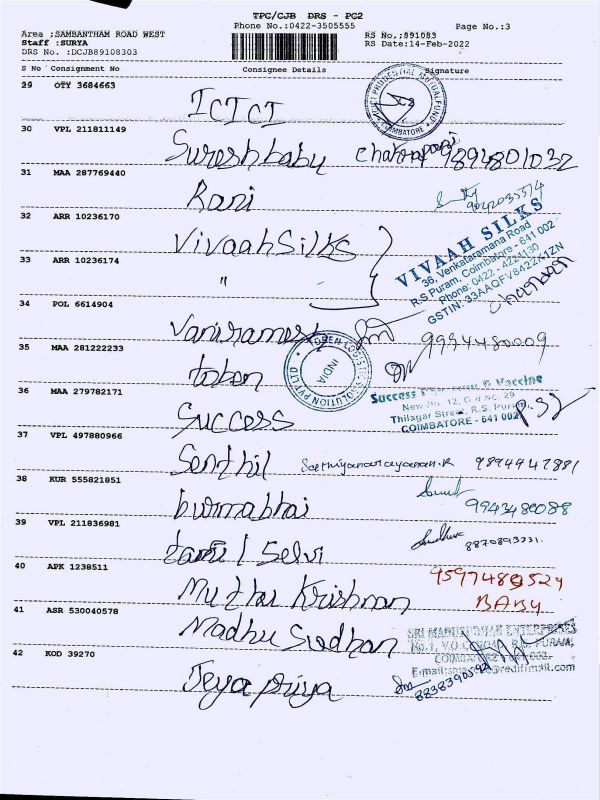 TPC/CJB DRS - PC2
Phone No.:0422-3505555
Page No.:3
Area :SAMBANTHAM ROAD WEST
RS No.:891083
Staff :SURYA
RS Date:14-Feb-2022
DRS No. :DCJB89108303
S No Consignment No Consignee Details Signature
29 OTY 3684663
ICICI
PRUDENTIAL MUTUAL FUND
COIMBATORE
30 VPL 211811149
Sureshbabu 9894801032
31 MAA 287769440
Rani
9042035574
32 ARR 10236170
Vivaah Silks
33 ARR 10236174
"
VIVAAH SILKS
36, Venkataramana Road
R.S Puram, Coimbatore - 641 002
Phone: 0422 - 4224130
GSTIN: 33AAQFV8422K1ZN
34 POL 6614904
Vaniramesh 9994480009
35 MAA 281222233
token
LOGISTICS SOLUTION PVT LTD
INDIA
36 MAA 279782171
Success
Success & Vaccine
New No 12, G.D No. 29
Thilagar Street, R.S. Puram,
COIMBATORE - 641 002
37 VPL 497880966
Senthil Sathiyanarayanan.R 9894447881
38 KUR 555821851
burmabhai
9943480088
39 VPL 211836981
tamil Selvi
8870893331
40 APK 1238511
Muthu Krishnan
9597489524
BABY
41 ASR 530040578
Madhu Sudhan
SRI MADHUSUDHAN ENTERPRISES
42 KOD 39270
Jeyapriya
8838390594